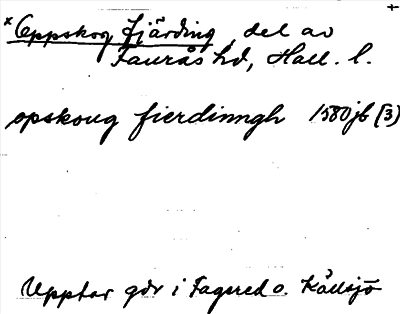 +
* Uppskog fjärding, del av
Faurås hd, Hall. l.
opskoug fierdinngh 1580 jb (3)
Upptar gdr i Fagered o. Källsjö